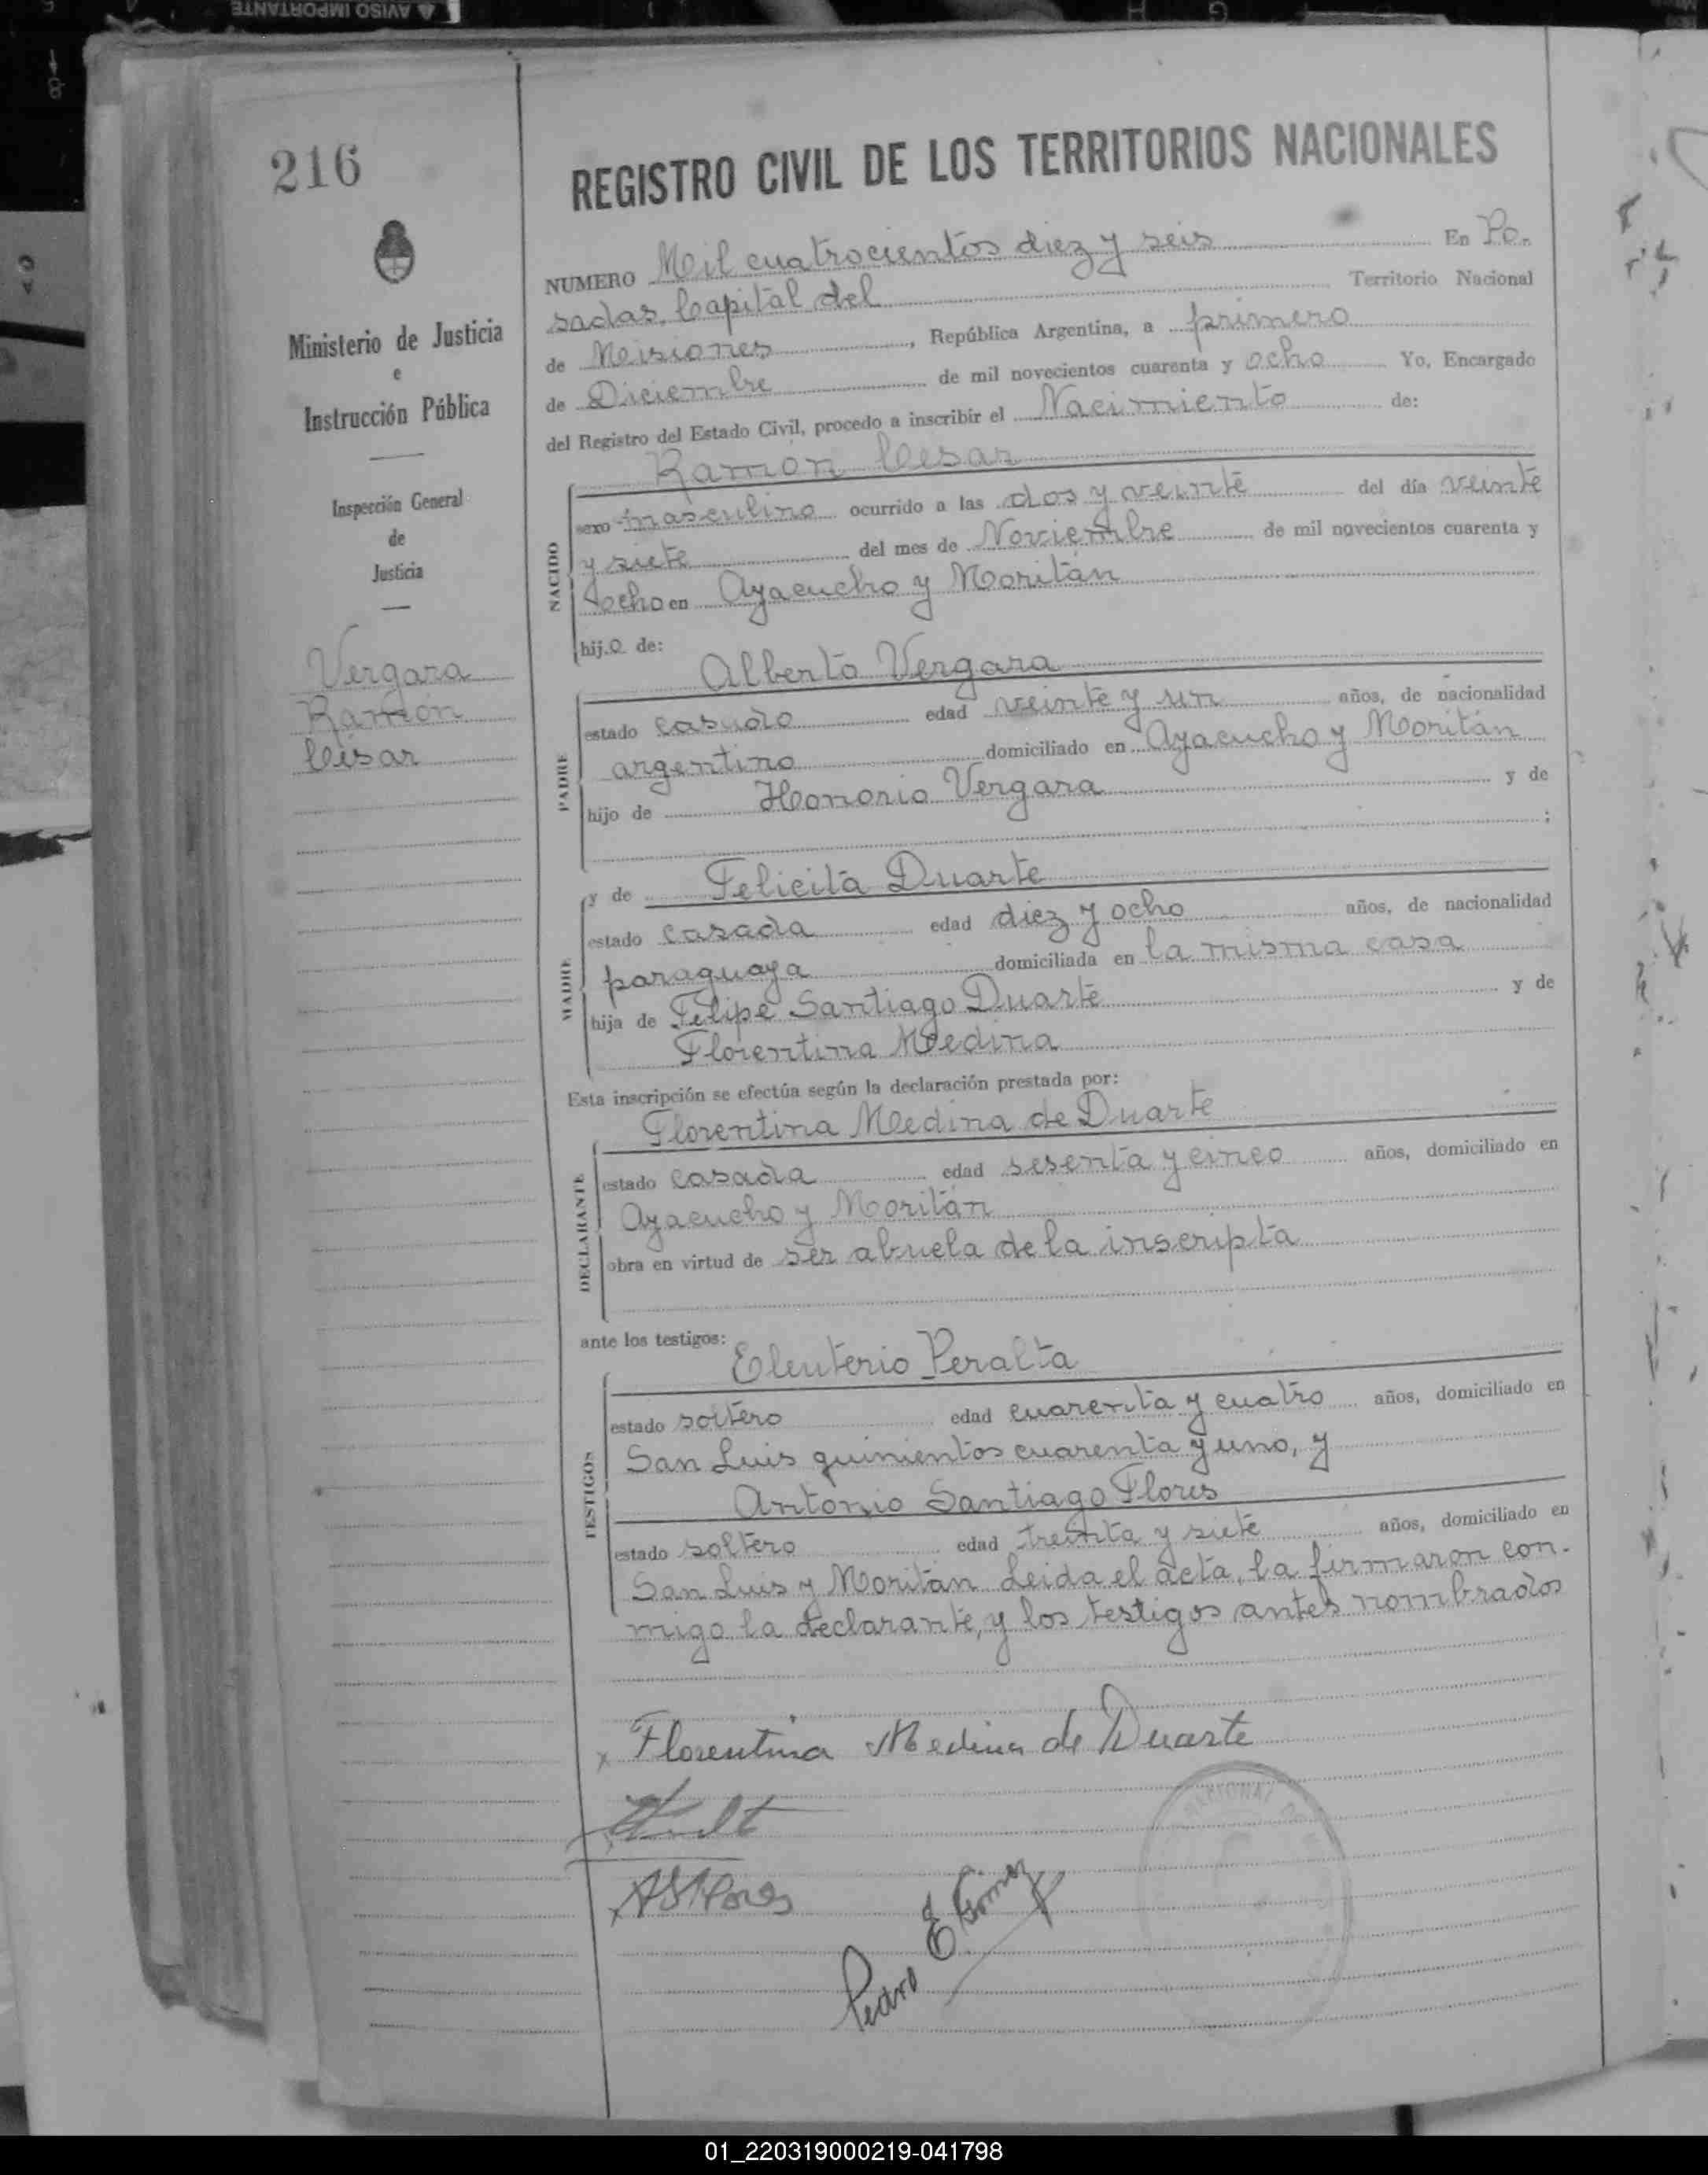 AVISO IMPORTANTE
216
REGISTRO CIVIL DE LOS TERRITORIOS NACIONALES
Ministerio de Justicia
e
Instrucción Pública
Inspección General
de
Justicia
Vergara
Ramón
César
NUMERO Mil cuatrocientos diez y seis En Po-
sadas, Capital del Territorio Nacional
de Misiones, República Argentina, a primero
de Diciembre de mil novecientos cuarenta y ocho Yo, Encargado
del Registro del Estado Civil, procedo a inscribir el Nacimiento de:
Ramón Cesar
NACIDO
sexo masculino ocurrido a las dos y veinte del día veinte
y siete del mes de Noviembre de mil novecientos cuarenta y
ocho en Ayacucho y Moritán
hij.o de:
Alberto Vergara
PADRE
estado casado edad veinte y un años, de nacionalidad
argentino domiciliado en Ayacucho y Moritán
hijo de Honorio Vergara y de
;
y de Felicita Duarte
MADRE
estado casada edad diez y ocho años, de nacionalidad
paraguaya domiciliada en la misma casa
hija de Felipe Santiago Duarte y de
Florentina Medina
Esta inscripción se efectúa según la declaración prestada por:
Florentina Medina de Duarte
DECLARANTE
estado casada edad sesenta y cinco años, domiciliado en
Ayacucho y Moritán
obra en virtud de ser abuela de la inscripta
ante los testigos:
Eleuterio Peralta
TESTIGOS
estado soltero edad cuarenta y cuatro años, domiciliado en
San Luis quinientos cuarenta y uno, y
Antonio Santiago Flores
estado soltero edad treinta y siete años, domiciliado en
San Luis y Moritán Leida el acta, la firmaron con-
migo la declarante, y los testigos antes nombrados
x Florentina Medina de Duarte
x A S Flores
Pedro E. Gómez
01_220319000219-041798